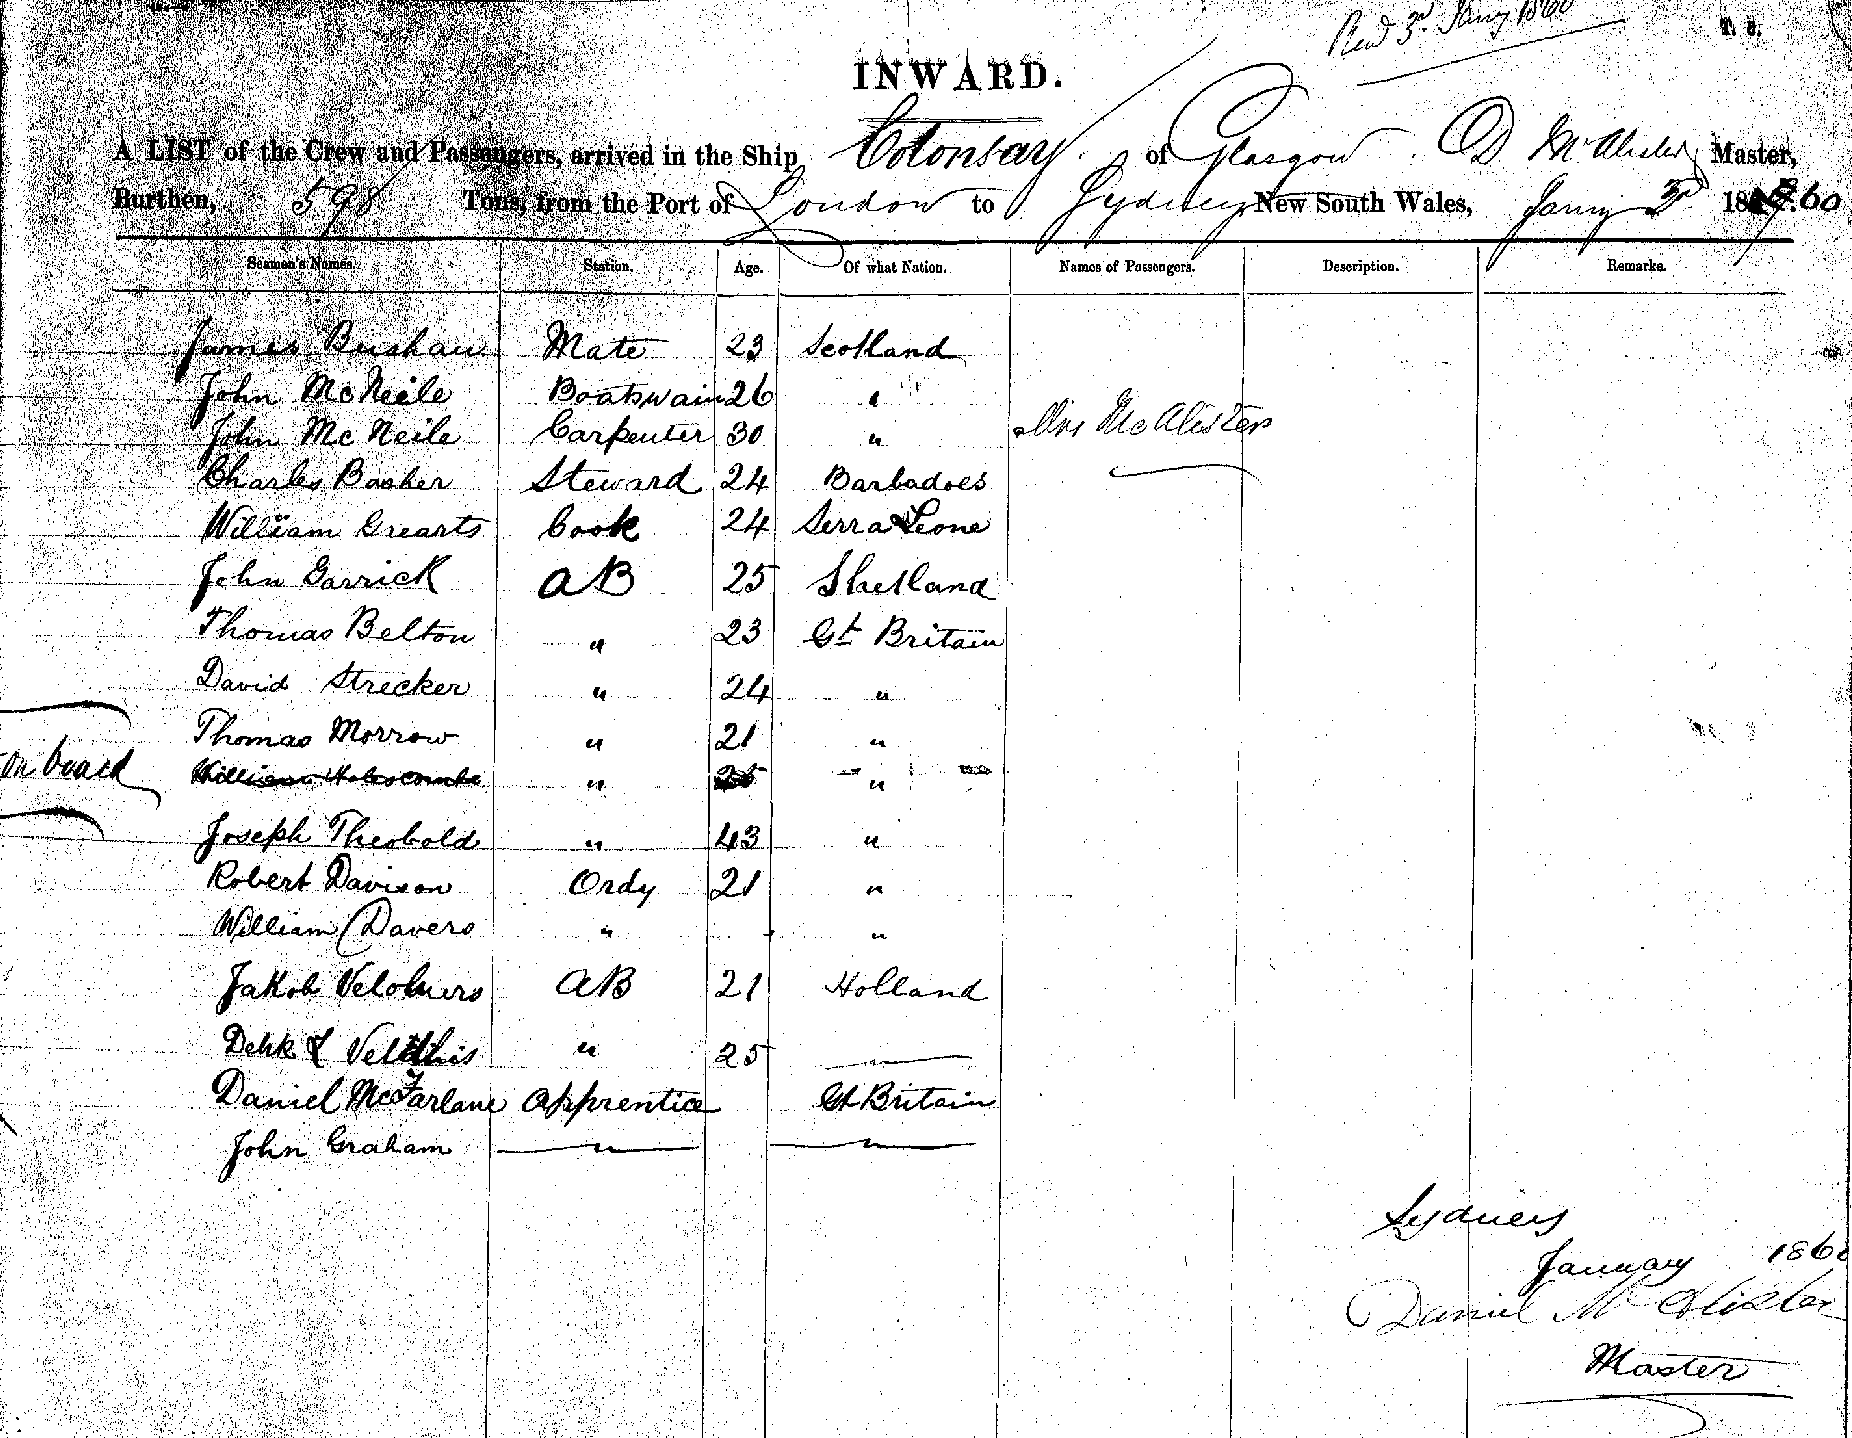 Recd 3rd Jany 1860
T. 8.
INWARD.
A LIST of the Crew and Passengers, arrived in the Ship Colonsay of Glasgow D McAlister, Master,
Burthen, 598 Tons, from the Port of London to Sydney New South Wales, Jany 3rd 1860
Seamen's Names. Station. Age. Of what Nation. Names of Passengers. Description. Remarks.
James Mate 23 Scotland
John McNeile Boatswain 26 "
John McNeile Carpenter 30 " Mrs McAlister
Charles Steward 24 Barbadoes
William Grearts Cook 24 Serra Leone
John Garrick AB 25 Shetland
Thomas Belton " 23 Gt Britain
David Strecker " 24 "
Thomas Morrow " 21 "
on board William " 25 "
Joseph Theobold " 43 "
Robert Davison Ordy 21 "
William Davers " "
Jakob AB 21 Holland
" 25 "
Daniel McFarlane Apprentice Gt Britain
John Graham " "
Sydney
January 1860
Daniel McAlister
Master